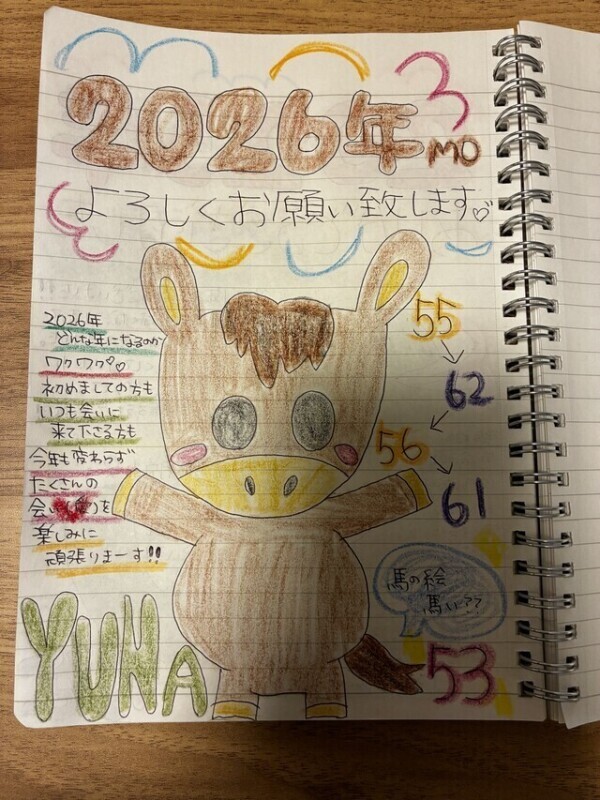 2026年
MO
よろしくお願い致します♡
2026年
どんな年になるのか
ワクワク♡♡
初めましての方も
いつも会いに
来て下さる方も
今年も変わらず
たくさんの
会い
を
楽しみに
頑張りまーす!!
55
62
56
61
馬の絵
馬い??
53
YUNA